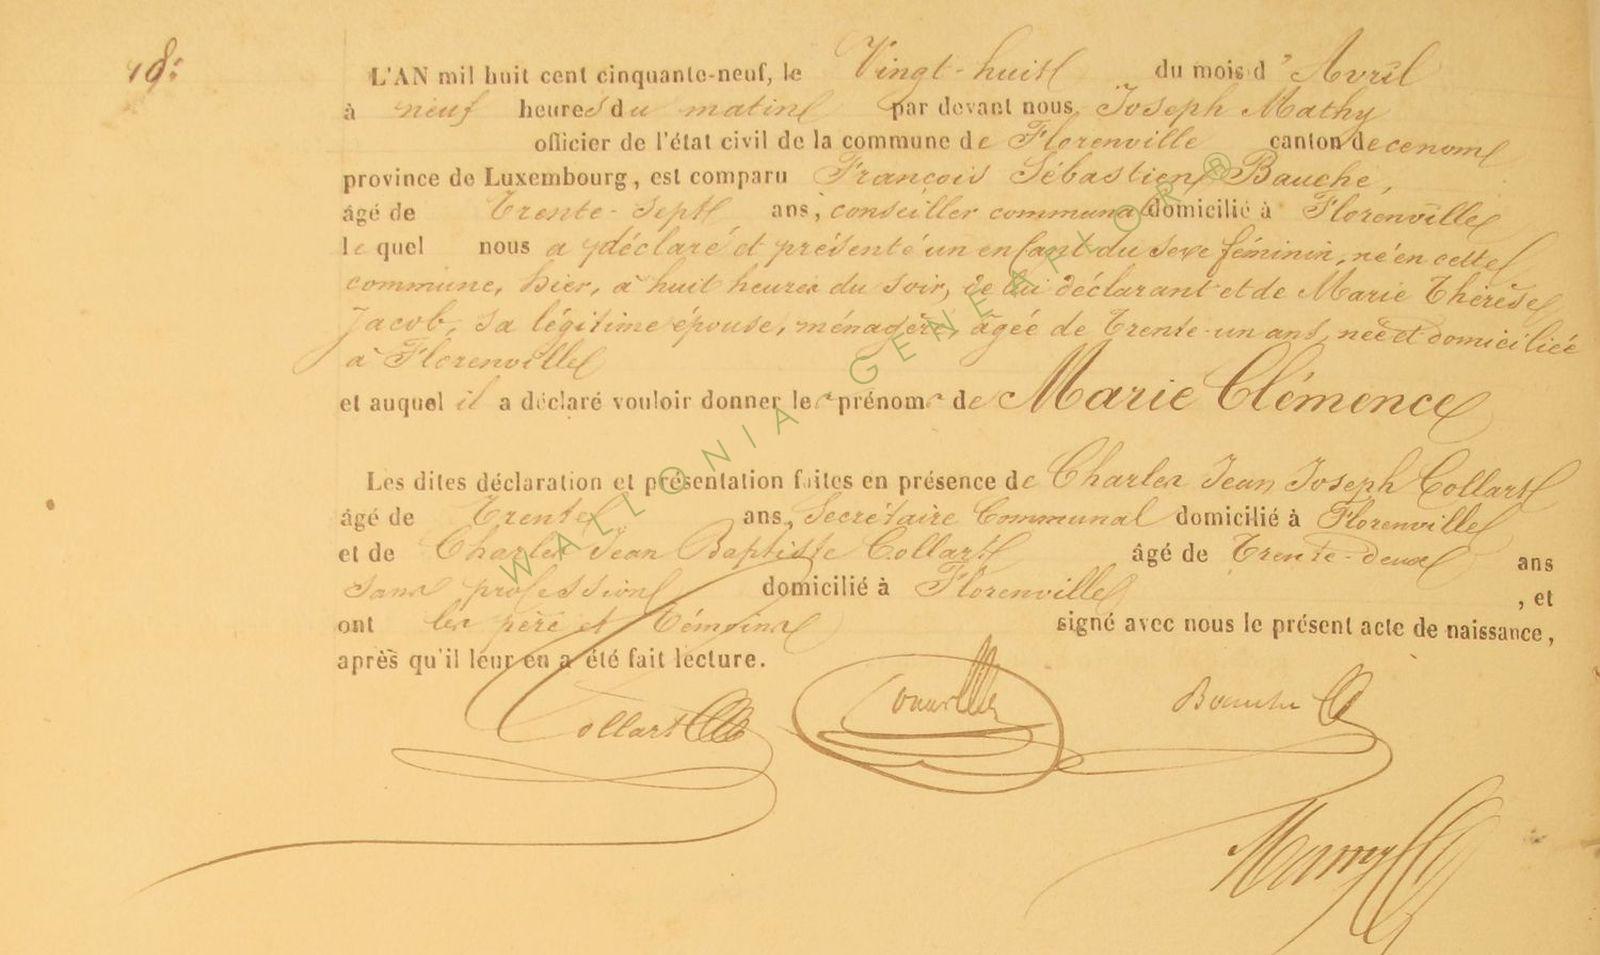 18:
L'AN mil huit cent cinquante-neuf, le Vingt-huit du mois d'Avril
à neuf heures du matin par devant nous, Joseph Mathy
officier de l'état civil de la commune de Florenville canton de ce nom
province de Luxembourg, est comparu François Sébastien Bauche,
âgé de Trente-sept ans, conseiller communal domicilié à Florenville
lequel nous a déclaré et présenté un enfant du sexe féminin, né en cette
commune, hier, à huit heures du soir, de lui déclarant et de Marie Thérèse
Jacob, sa légitime épouse, ménagère, âgée de Trente-un ans, née et domiciliée
à Florenville
et auquel il a déclaré vouloir donner les prénoms de Marie Clémence
Les dites déclaration et présentation faites en présence de Charles Jean Joseph Collart
âgé de Trente ans, Secrétaire Communal domicilié à Florenville
et de Charles Jean Baptiste Collart âgé de Trente-deux ans
sans profession domicilié à Florenville , et
ont les père et témoins signé avec nous le présent acte de naissance,
après qu'il leur en a été fait lecture.
Collart Bauche
WALLONIA-GENEAFLOR®